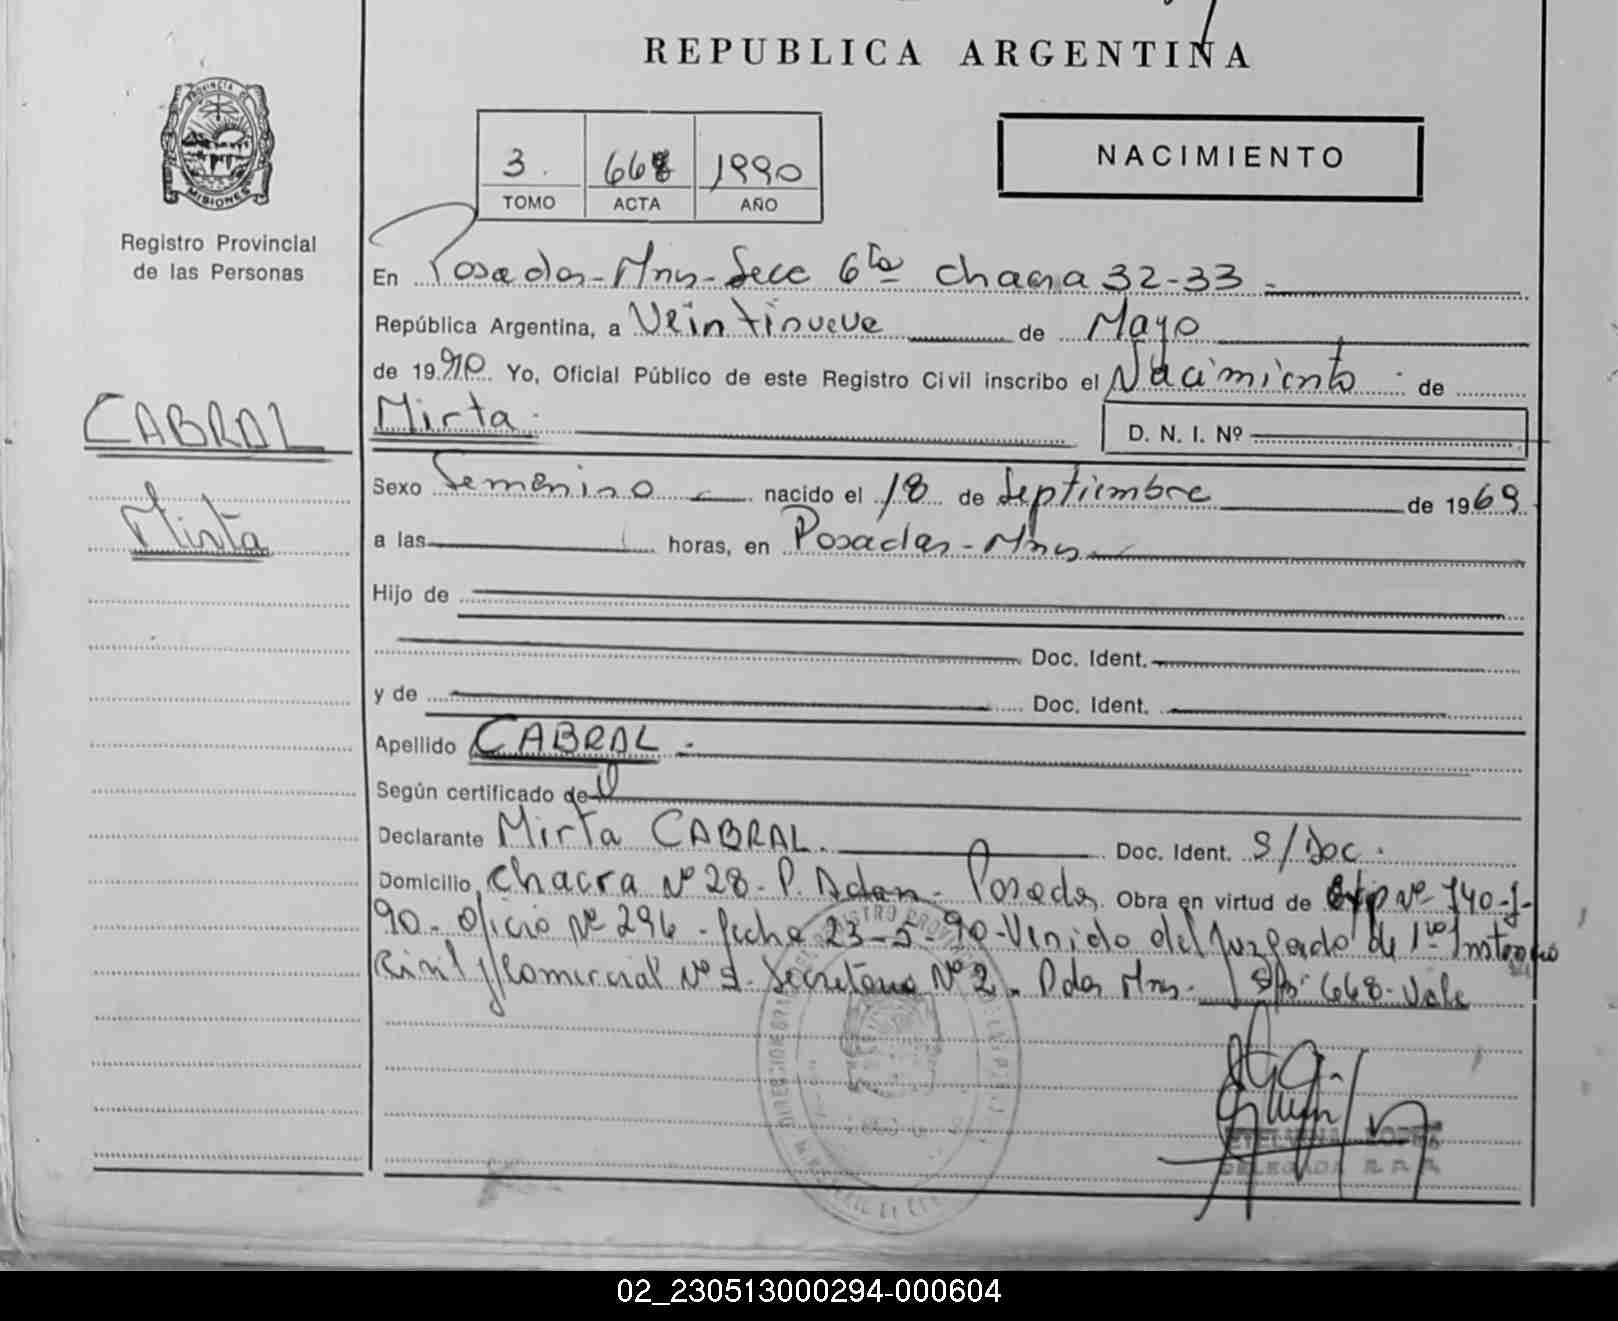 REPUBLICA ARGENTINA
PROVINCIA DE
MISIONES
Registro Provincial
de las Personas
3. 668 1990
TOMO ACTA AÑO
NACIMIENTO
En Posadas-Mnes-Secc 6ta chacra 32-33
República Argentina, a Veintinueve de Mayo
de 1990. Yo, Oficial Público de este Registro Civil inscribo el Nacimiento de
CABRAL
Mirta
Mirta
D. N. I. Nº
Sexo Femenino nacido el 18 de Septiembre de 1969
a las horas, en Posadas-Mnes
Hijo de
Doc. Ident.
y de Doc. Ident.
Apellido CABRAL
Según certificado de
Declarante Mirta CABRAL. Doc. Ident. S/Doc.
Domicilio Chacra Nº 28- P. Adan- Posadas Obra en virtud de Exp Nº 740-J-
90- Oficio Nº 296-fecha 23-5-90-Venido del Juzgado de 1ra
Civil y Comercial Secretaria Nº 2. Pdas Mnes- 668-Vale
DELEGADA R.P.P.
02_230513000294-000604